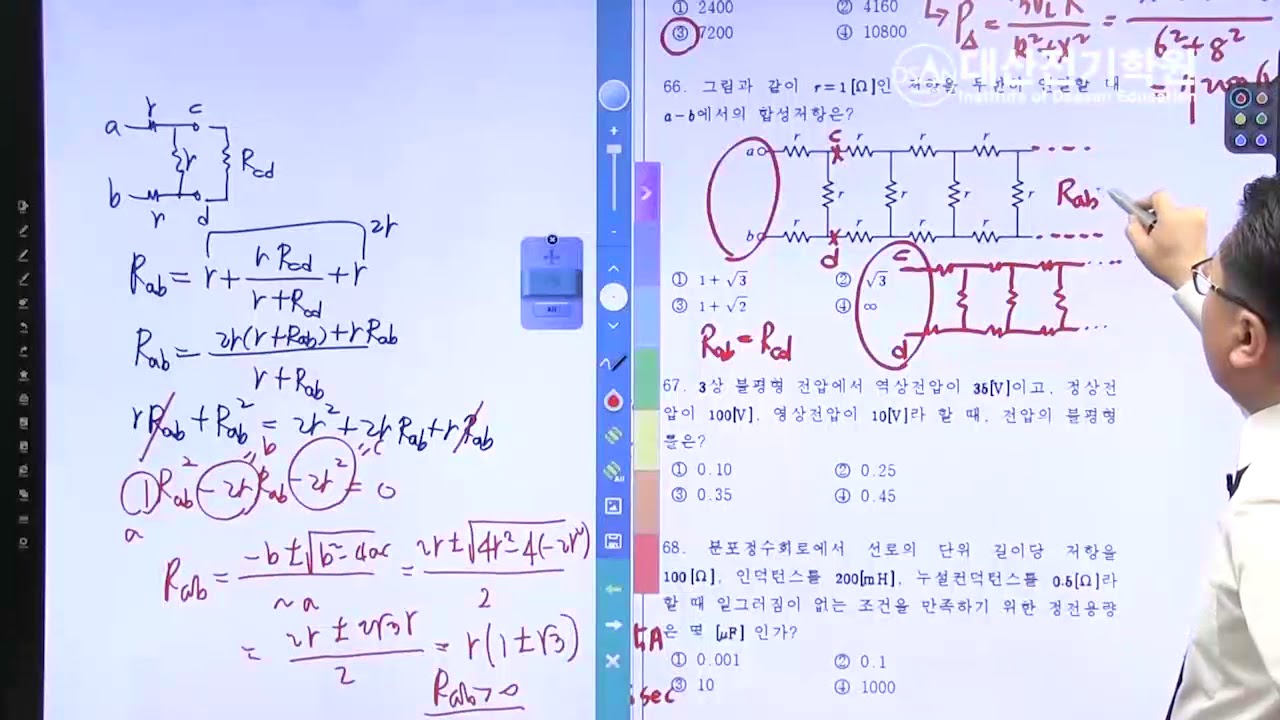 r c
a
r R_cd
b
r d
2r
R_ab = r + r R_cd / r + R_cd + r
R_ab = 2r(r + R_ab) + r R_ab / r + R_ab
r R_ab + R_ab² = 2r² + 2r R_ab + r R_ab
"b "c
① R_ab² - 2r R_ab - 2r² = 0
a
R_ab = -b ± √b² - 4ac / 2a = 2r ± √4r² - 4(-2r²) / 2
= 2r ± 2√3 r / 2 = r(1 ± √3)
R_ab > 0
All
All
① 2400 ② 4160
③ 7200 ④ 10800
P_Δ =
6² + 8²
대산전기학원
Institute of Daesan Education
66. 그림과 같이 r=1[Ω]인 저항을 무한히 연결할 때
a-b에서의 합성저항은?
r c r r r
a
r r r r
R_ab
b
r r r r
d
c
① 1+√3 ② √3
③ 1+√2 ④ ∞
d
R_ab = R_cd
67. 3상 불평형 전압에서 역상전압이 35[V]이고, 정상전
압이 100[V], 영상전압이 10[V]라 할 때, 전압의 불평형
률은?
① 0.10 ② 0.25
③ 0.35 ④ 0.45
68. 분포정수회로에서 선로의 단위 길이당 저항을
100[Ω], 인덕턴스를 200[mH], 누설컨덕턴스를 0.5[Ω]라
할 때 일그러짐이 없는 조건을 만족하기 위한 정전용량
은 몇 [μF] 인가?
① 0.001 ② 0.1
③ 10 ④ 1000
sec